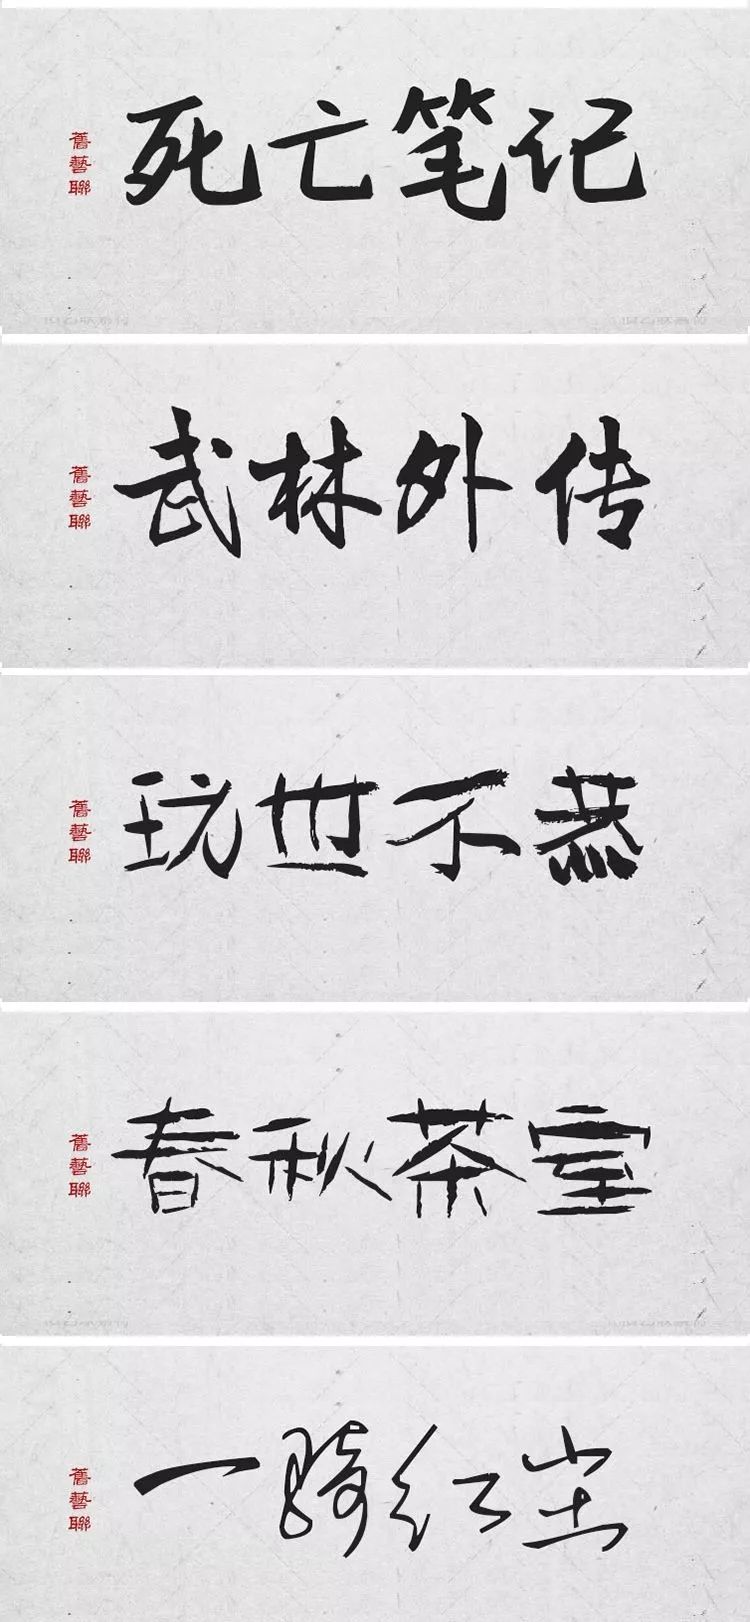 舊藝聯
死亡笔记
舊藝聯
武林外传
舊藝聯
玩世不恭
舊藝聯
春秋茶室
舊藝聯
一骑红尘